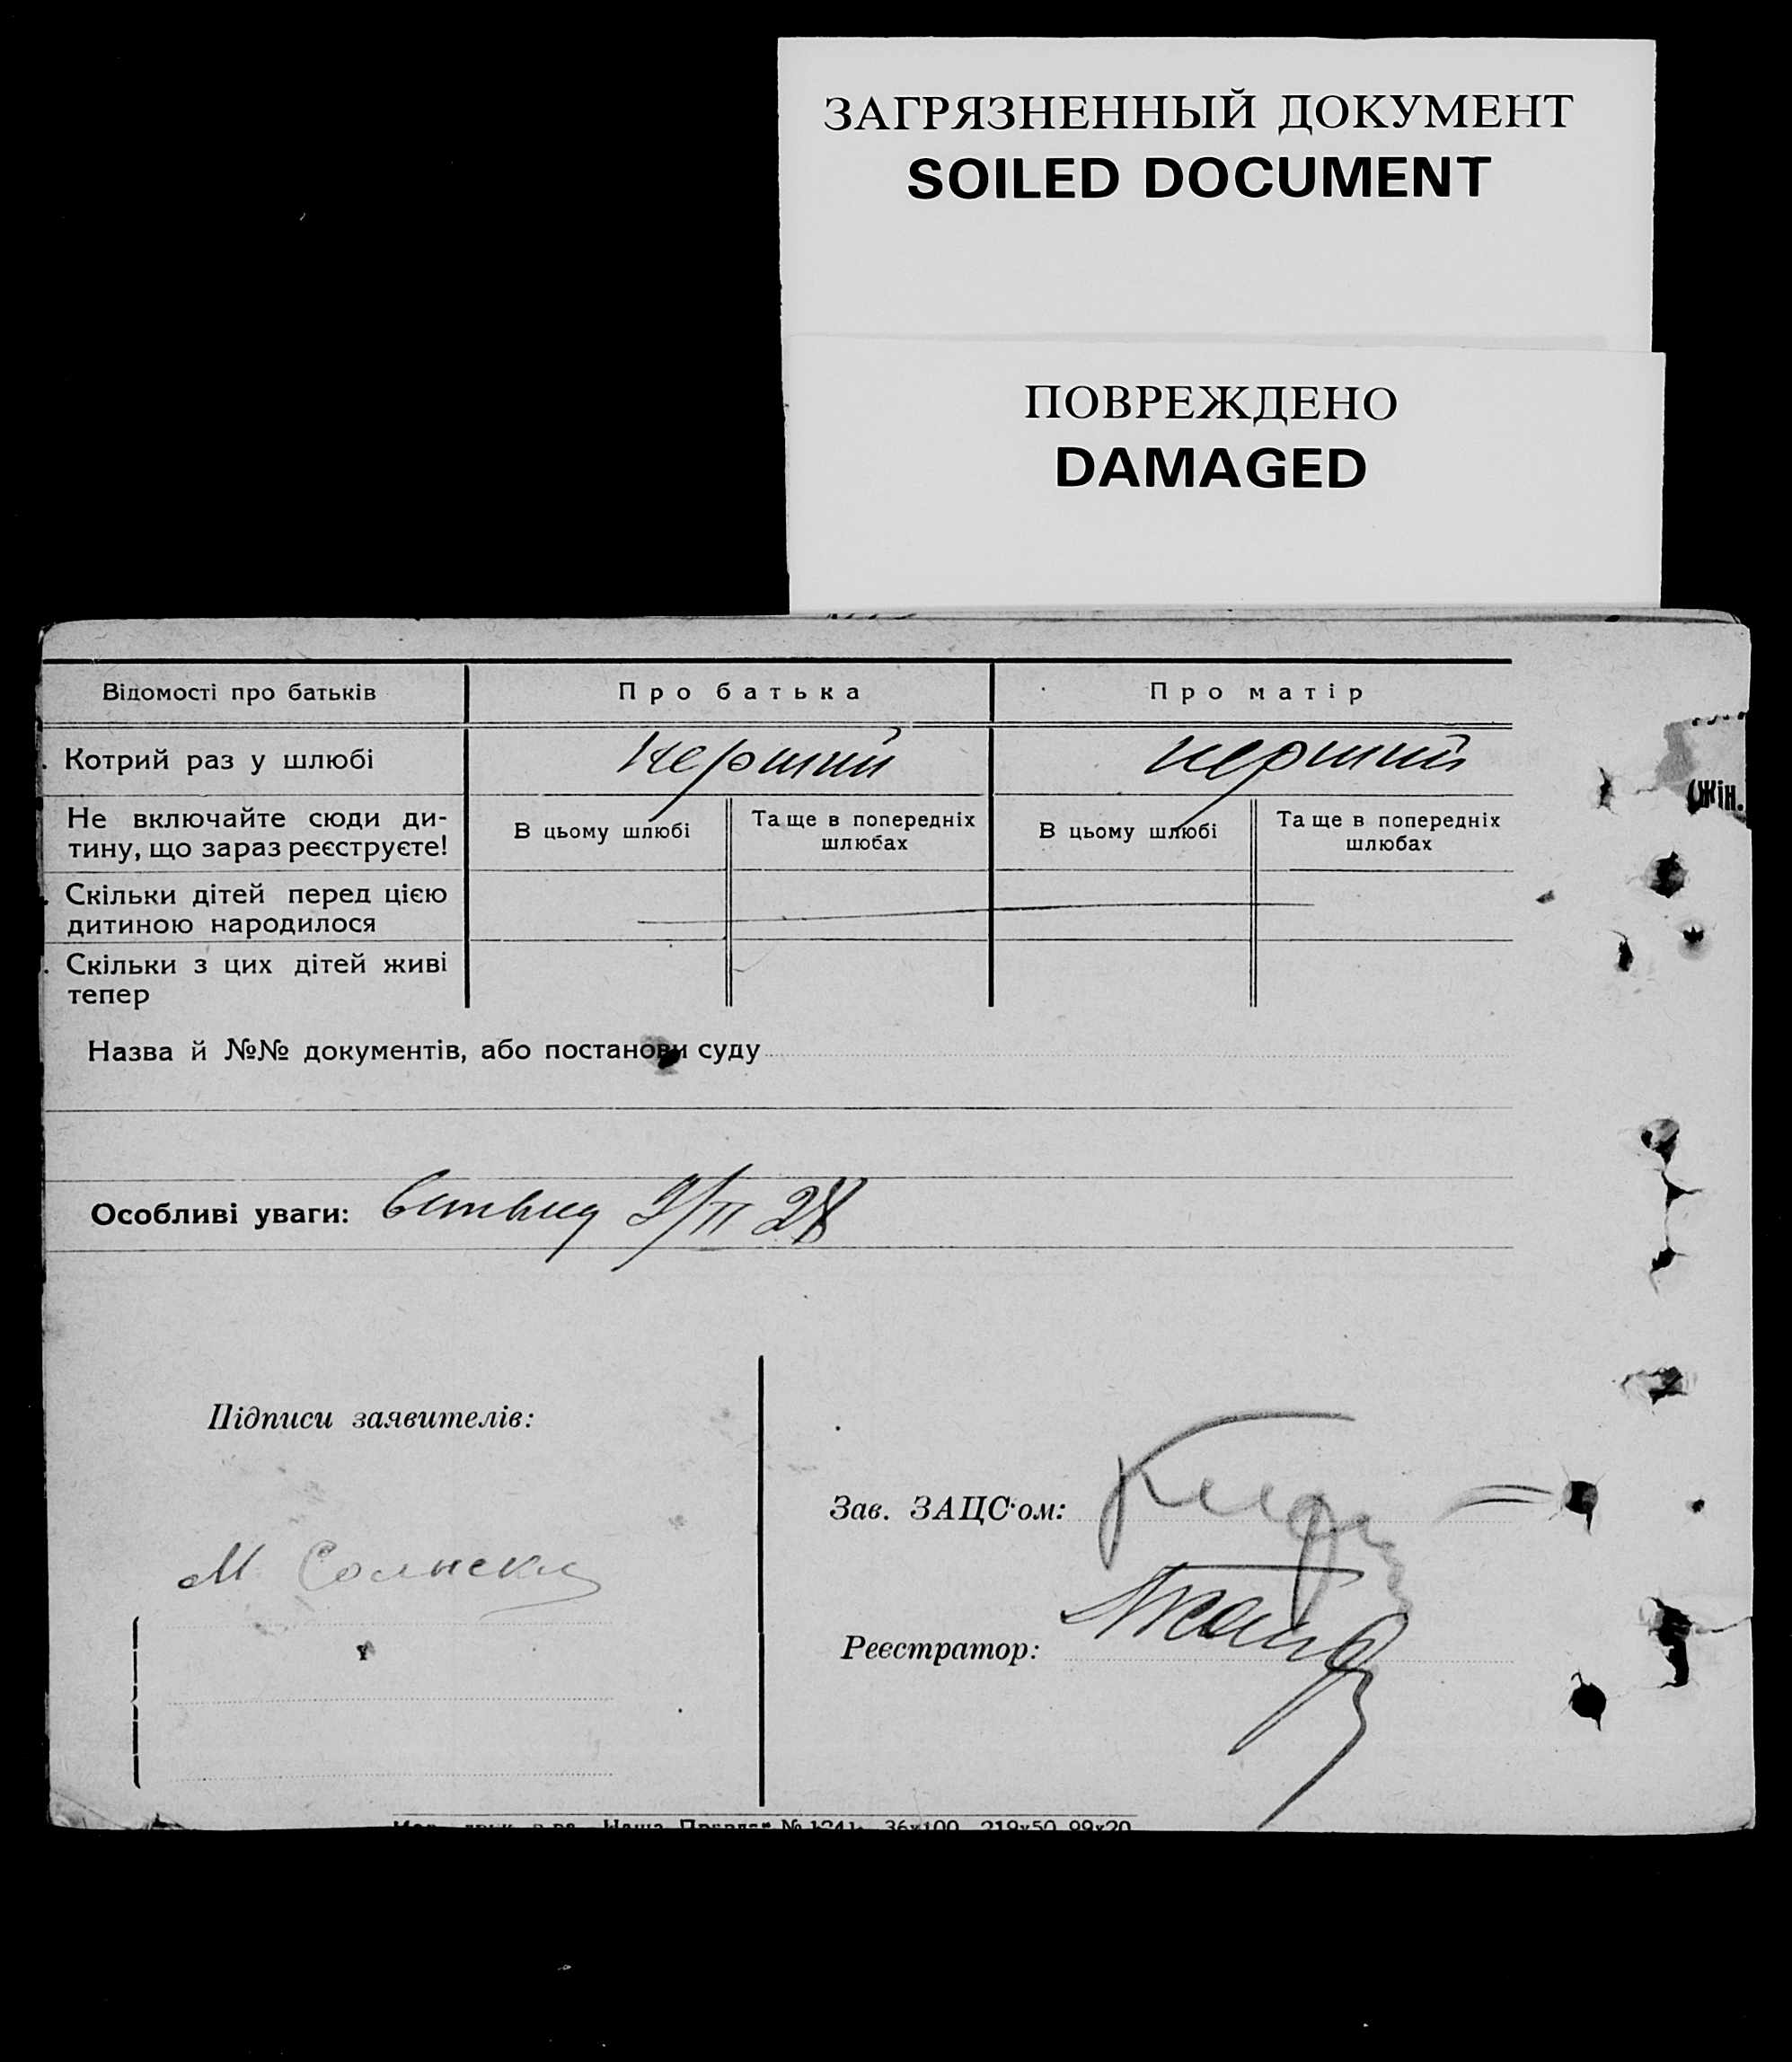 ЗАГРЯЗНЕННЫЙ ДОКУМЕНТ
SOILED DOCUMENT
ПОВРЕЖДЕНО
DAMAGED
Відомості про батьків Про батька Про матір
Котрий раз у шлюбі перший перший
(Жін.
Не включайте сюди ди-
тину, що зараз реєструєте!
В цьому шлюбі
Та ще в попередніх
шлюбах
В цьому шлюбі
Та ще в попередніх
шлюбах
Скільки дітей перед цією
дитиною народилося
Скільки з цих дітей живі
тепер
Назва й №№ документів, або постанови суду
Особливі уваги: 9/II 28
Підписи заявителів:
Зав. ЗАЦС'ом:
М
Реєстратор:
36х100